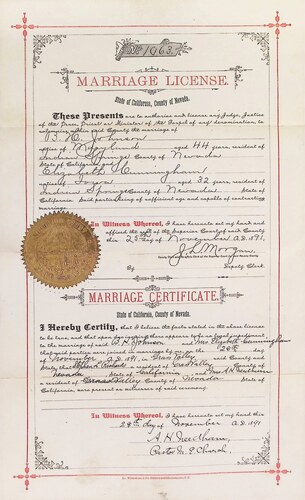 No. 1963.
MARRIAGE LICENSE.
State of California, County of Nevada.
These Presents are to authorize and license any Judge, Justice
of the Peace, Priest or Minister of the Gospel of any denomination, to
solemnize within said County the marriage of
B. H. Johnson
native of Maryland aged 44 years, resident of
Indian Springs County of Nevada
State of California and
Elizabeth Cunningham
native of Iowa aged 32 years, resident of
Indian Springs County of Nevada State of
California. Said parties being of sufficient age and capable of contracting
marriage.
In Witness Whereof, I have hereunto set my hand and
affixed the seal of the Superior Court of said County
this 25th day of November A.D. 1891.
J. L. Morgan
By
Deputy Clerk.
MARRIAGE CERTIFICATE.
State of California, County of Nevada.
I Hereby Certify, that I believe the facts stated in the above license
to be true, and that upon due inquiry there appears to be no legal impediment
to the marriage of said B. H. Johnson and Mrs Elizabeth Cunningham
that said parties were joined in marriage by me on the 28th day
of November A.D. 1891, in Grass Valley said County and
State; that a resident of Grass Valley County of
Nevada State of California and Mrs A. H. Needham
a resident of Grass Valley County of Nevada State of
California, are present as witnesses of said ceremony.
In Witness Whereof, I have hereunto set my hand this
28th day of November A.D. 1891
A. H. Needham,
Pastor M. E. Church.